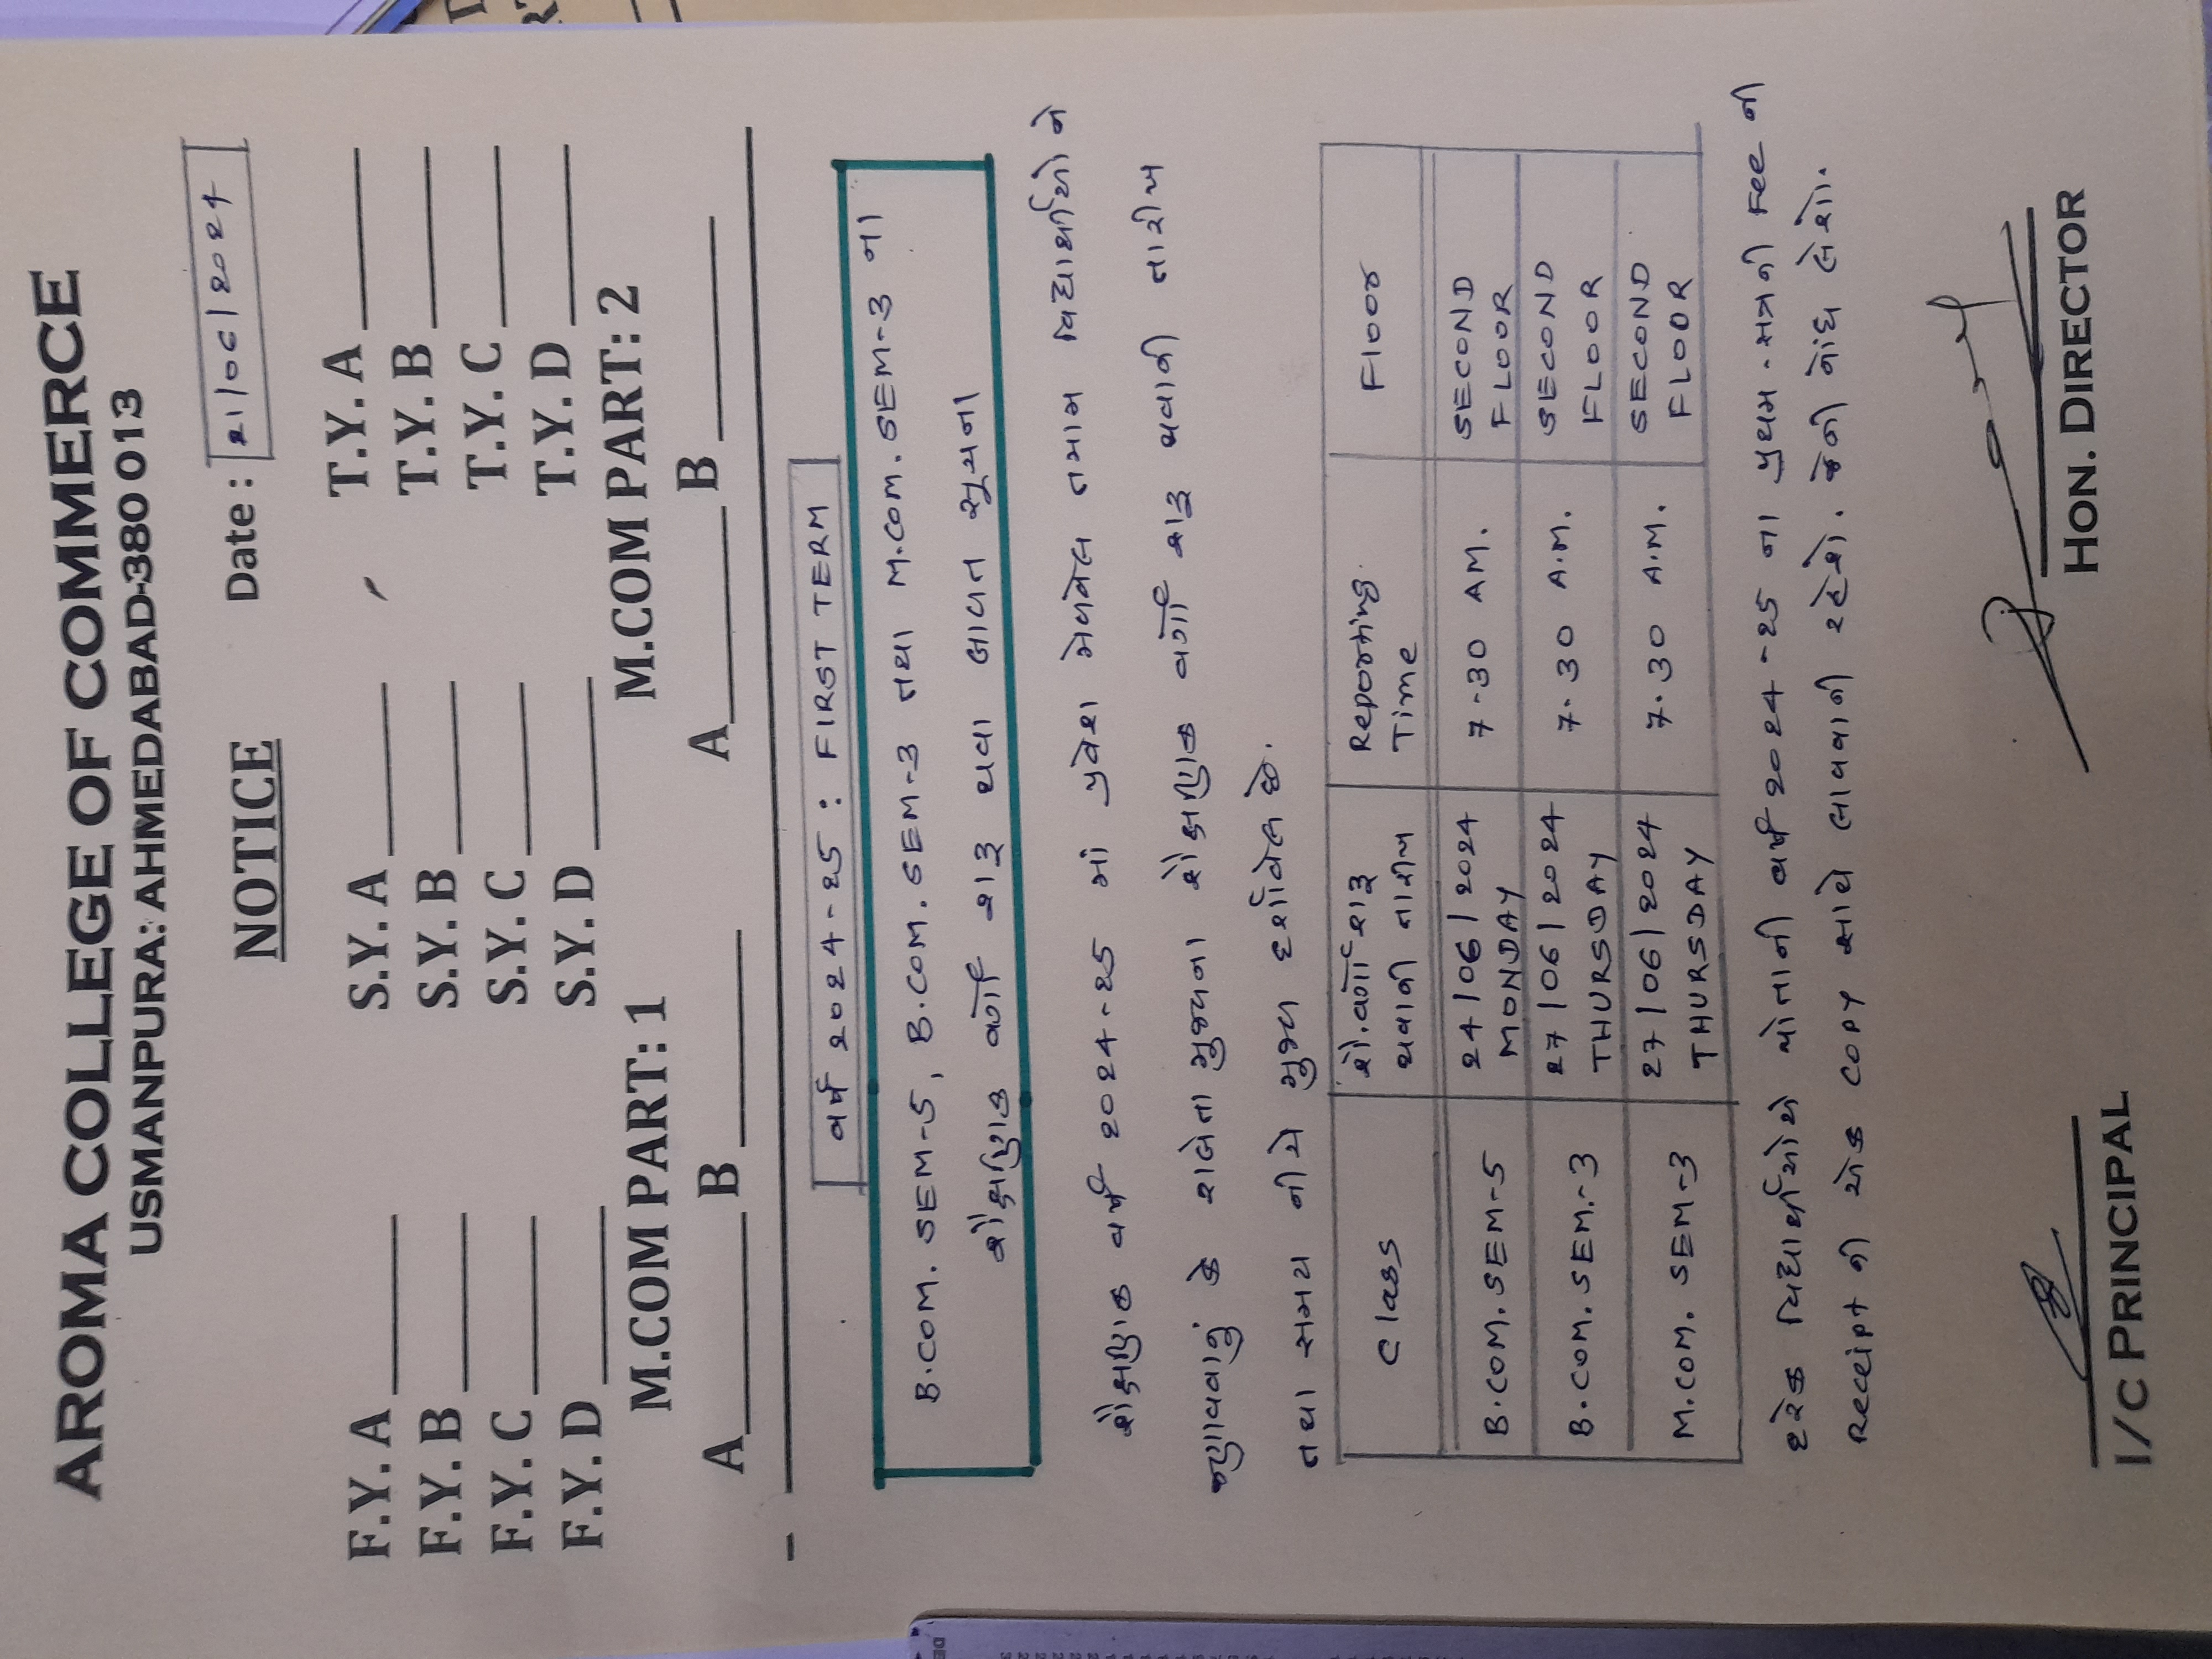 AROMA COLLEGE OF COMMERCE
USMANPURA: AHMEDABAD-380 013
NOTICE Date: 21/06/2024
F.Y. A S.Y. A T.Y. A
F.Y. B S.Y. B T.Y. B
F.Y. C S.Y. C T.Y. C
F.Y. D S.Y. D T.Y. D
M.COM PART: 1 M.COM PART: 2
A B A B
વર્ષ 2024-25 : FIRST TERM
B.COM. SEM-5, B.COM. SEM-3 તથા M.COM. SEM-3 ના
શૈક્ષણિક વર્ગો શરૂ થવા બાબત સૂચના
શૈક્ષણિક વર્ષ 2024-25 માં પ્રવેશ મેળવેલ તમામ વિદ્યાર્થીઓ ને
જણાવવાનું કે શાખેતા મુજબના શૈક્ષણિક વર્ગો શરૂ થવાની તારીખ
તથા સમય નીચે મુજબ દર્શાવેલ છે.
Class શૈ.વર્ગો શરૂ થવાની તારીખ Reporting Time Floor
B.COM. SEM-5 24/06/2024 MONDAY 7-30 AM. SECOND FLOOR
B.COM. SEM.-3 27/06/2024 THURSDAY 7.30 A.M. SECOND FLOOR
M.COM. SEM-3 27/06/2024 THURSDAY 7.30 A.M. SECOND FLOOR
દરેક વિદ્યાર્થીઓએ પોતાની વર્ષ 2024-25 ના પ્રથમ-સત્રની Fee ની
Receipt ની એક COPY સાથે લાવવાની રહેશે. જેની નોંધ લેશો.
I/C PRINCIPAL HON. DIRECTOR